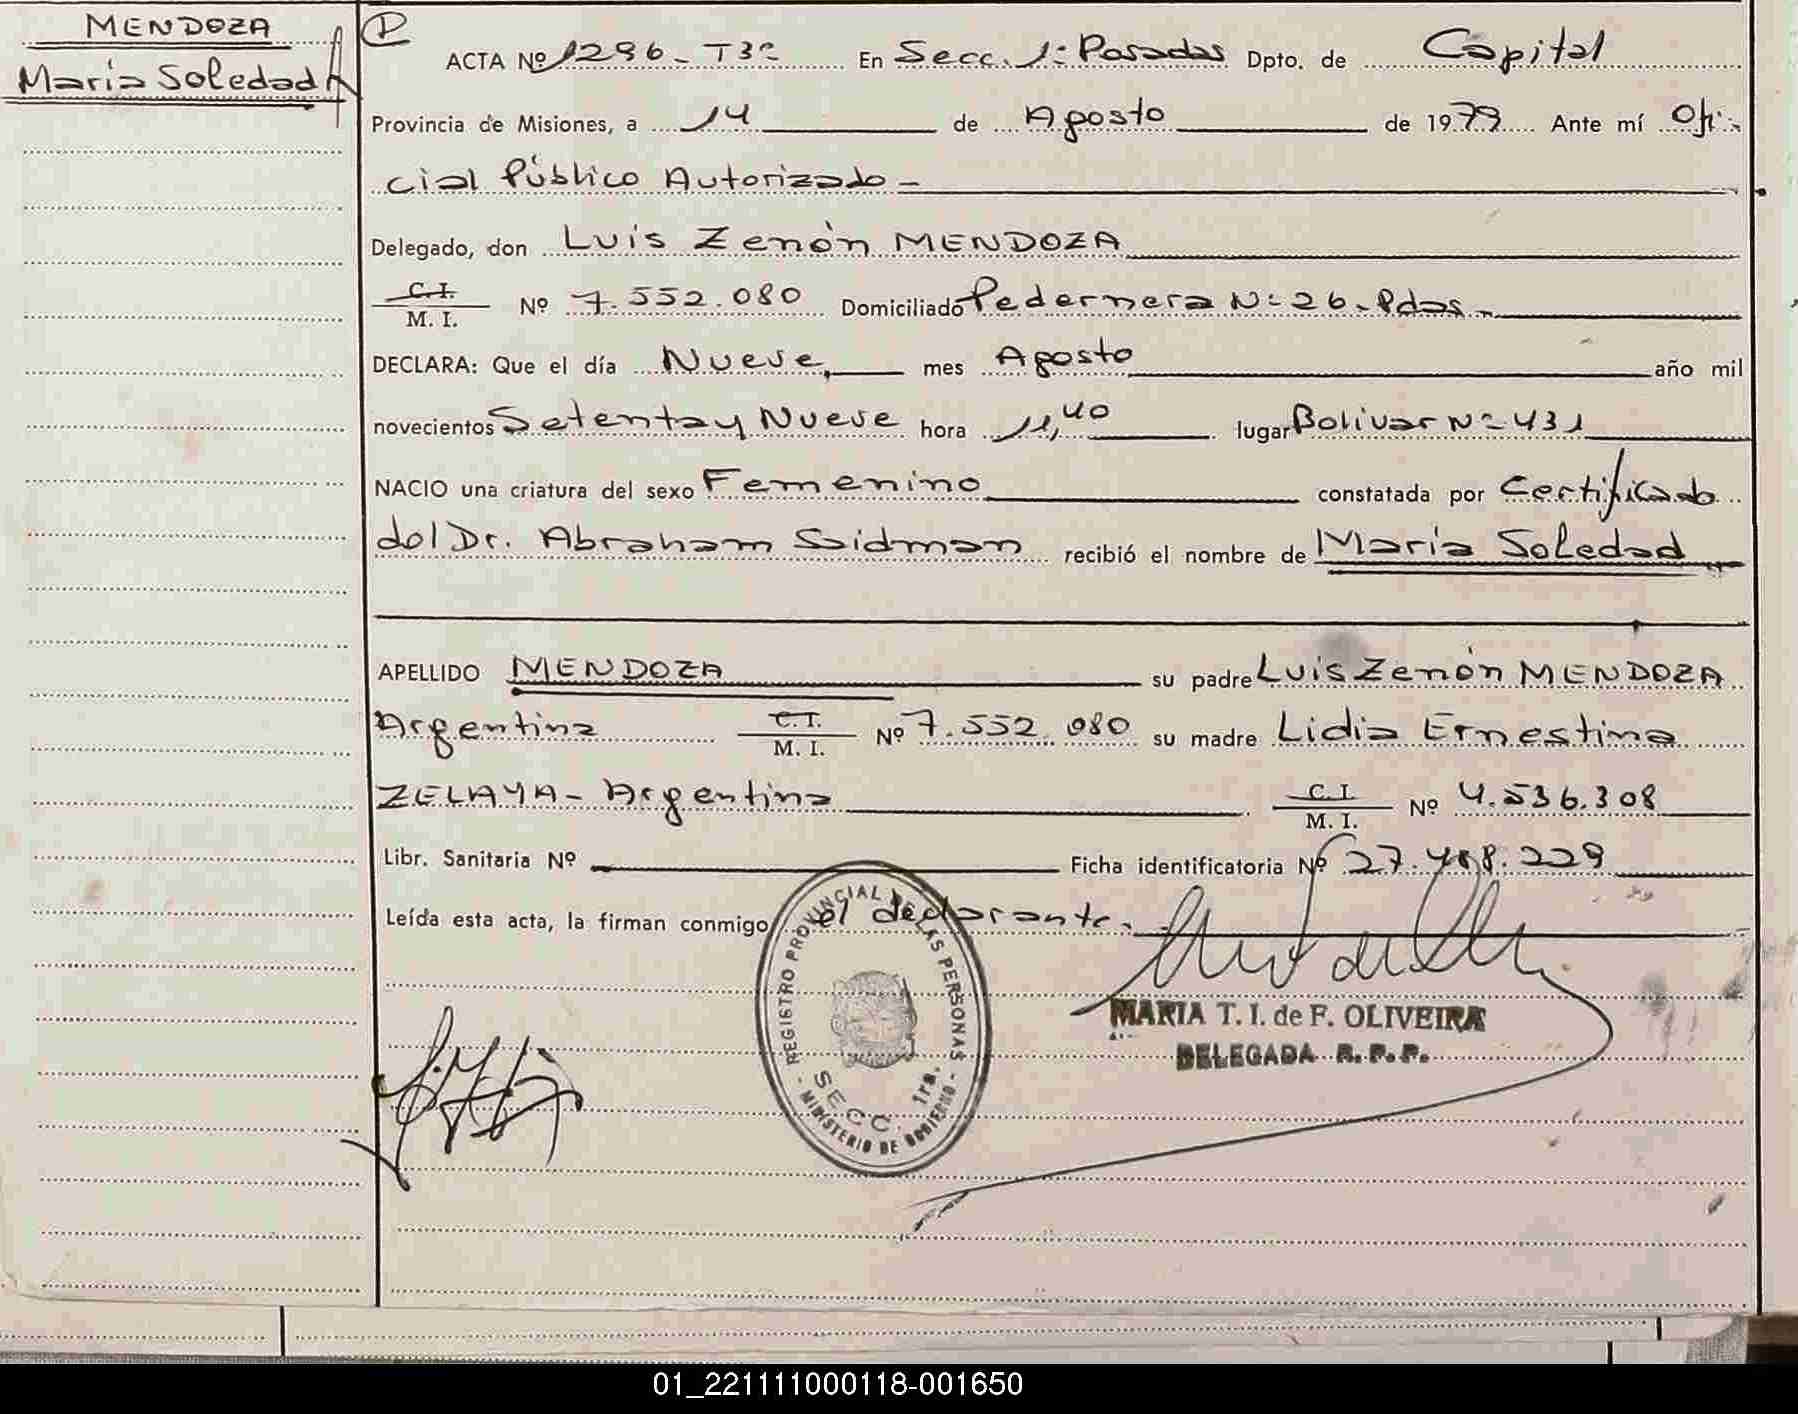 MENDOZA
María Soledad
ACTA Nº 1296 - T3º En Secc. 1º Posadas Dpto. de Capital
Provincia de Misiones, a 14 de Agosto de 1979 Ante mí Ofi-
cial Público Autorizado -
Delegado, don Luis Zenón MENDOZA
C.I.
M. I. Nº 7.552.080 Domiciliado Pedernera Nº 26 - Pdas -
DECLARA: Que el día Nueve, mes Agosto año mil
novecientos Setenta y Nueve hora 11,40 lugar Bolivar Nº 431
NACIO una criatura del sexo Femenino constatada por Certificado
del Dr. Abraham Saidman recibió el nombre de María Soledad
APELLIDO MENDOZA su padre Luis Zenón MENDOZA
Argentina C.I.
M. I. Nº 7.552.080 su madre Lidia Ernestina
ZELAYA - Argentina C.I.
M. I. Nº 4.536.308
Libr. Sanitaria Nº Ficha identificatoria Nº 27.468.229
Leída esta acta, la firman conmigo el declarante.
REGISTRO PROVINCIAL DE LAS PERSONAS
SECC. 1ra.
- MINISTERIO DE GOBIERNO -
MARIA T. I. de F. OLIVEIRA
DELEGADA R. P. P.
01_221111000118-001650